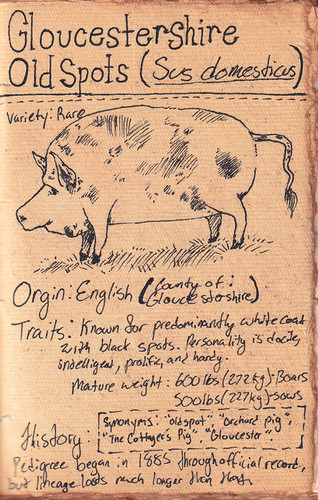 Gloucestershire
Old Spots (Sus domesticus)
Variety: Rare
Orgin: English (County of: Gloucestershire)
Traits: Known for predominantly white coat
with black spots. Personality is docile,
intelligent, prolific, and hardy.
Mature weight: 600 lbs (272 kg)-Boars
500 lbs (227 kg)-sows
Synonyms: "oldspot", "Orchard pig",
"The Cottager's Pig" "Gloucester"
History:
Pedigree began in 1885 through official record,
but lineage lasts much longer than that.